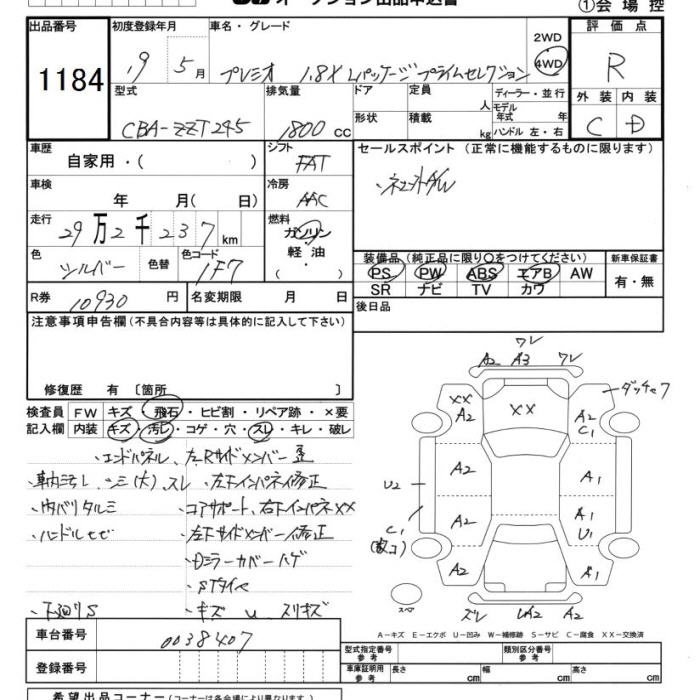 オークション出品申込書
①会場控
出品番号
1184
初度登録年月
19 5月
車名・グレード
プレミオ 1.8X Lパッケージ プライムセレクション
2WD
4WD
評価点
R
外装 内装
C D
型式
CBA-ZZT245
排気量
1800cc
ドア
形状
定員
人
積載
kg
ディーラー・並行
モデル年式 年
ハンドル 左・右
車歴
自家用・( )
シフト
FAT
車検
年 月( 日)
冷房
AAC
走行
29万2千237km
燃料
ガソリン
軽油
( ・ )
色
シルバー
色替
色コード
1F7
R券
10930円
名変期限 月 日
セールスポイント(正常に機能するものに限ります)
装備品(純正品に限り○をつけてください)
PS PW ABS エアB AW
SR ナビ TV カワ
新車保証書
有・無
後日品
注意事項申告欄(不具合内容等は具体的に記入して下さい)
修復歴 有 〔箇所 〕
検査員記入欄
FW キズ・飛石・ヒビ割・リペア跡・×要
内装 キズ・汚レ・コゲ・穴・スレ・キレ・破レ
・エンドパネル、左Rサイドメンバー歪
・車内ヨゴレ・シミ(大)、スレ
・左下インパネ修正
・内バリタルミ
・コアサポート、右下インパネXX
・ハンドルセビ
・左下サイドメンバー修正
・Dミラーカバーハゲ
・STタイヤ
・下廻りS
・キズ U スリキズ
ワレ
A2 A3 ワレ
ダッチャク
XX
A2
XX
A2
C1
A2
A1
U2
A2
A1
U1
C1
A2
A1
スペア
ズレ UA2 A2
A-キズ E-エクボ U-凹み W-補修跡 S-サビ C-腐食 XX-交換済
車台番号
0038407
登録番号
型式指定番号 参考
類別区分番号 参考
車庫証明用 参考
長さ cm
幅 cm
高さ cm
希望出品コーナー(コーナーは各会場により異なります。)